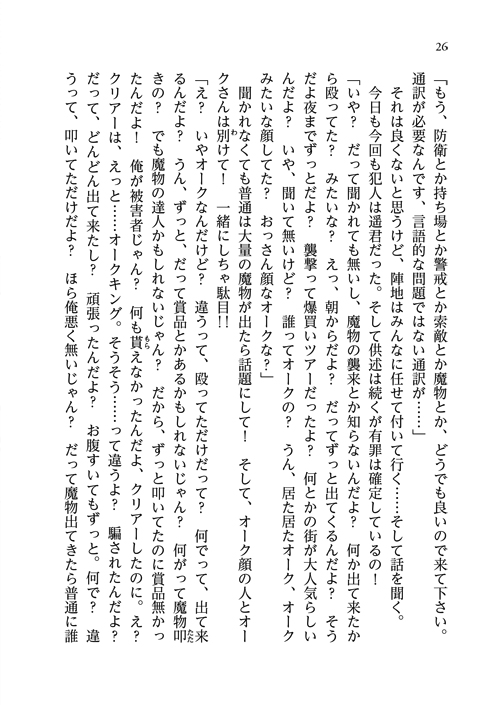 26
「もう、防衛とか持ち場とか警戒とか索敵とか魔物とか、どうでも良いので来て下さい。
通訳が必要なんです、言語的な問題ではない通訳が……」
それは良くないと思うけど、陣地はみんなに任せて付いて行く……そして話を聞く。
今日も今回も犯人は遥君だった。そして供述は続くが有罪は確定しているの！
「いや？　だって聞かれても無いし、魔物の襲来とか知らないんだよ？　何か出て来たか
ら殴ってた？　みたいな？　えっ、朝からだよ？　だってずっと出てくるんだよ？　そう
だよ夜までずっとだよ？　襲撃って爆買いツアーだったよ？　何とかの街が大人気らしい
んだよ？　いや、聞いて無いけど？　誰ってオークの？　うん、居た居たオーク、オーク
みたいな顔してた？　おっさん顔なオークな？」
聞かれなくても普通は大量の魔物が出たら話題にして！　そして、オーク顔の人とオー
クさんは別わけて！　一緒にしちゃ駄目!!
「え？　いやオークなんだけど？　違うって、殴ってただけだって？　何でって、出て来
るんだよ？　うん、ずっと、だって賞品とかあるかもしれないじゃん？　何がって魔物叩たた
きの？　でも魔物の達人かもしれないじゃん？　だから、ずっと叩いてたのに賞品無かっ
たんだよ！　俺が被害者じゃん？　何も貰もらえなかったんだよ、クリアーしたのに。え？
クリアーは、えっと……オークキング。そうそう……って違うよ？　騙されたんだよ？
だって、どんどん出て来たし？　頑張ったんだよ？　お腹すいてもずっと。何で？　違
うって、叩いてただけだよ？　ほら俺悪く無いじゃん？　だって魔物出てきたら普通に誰